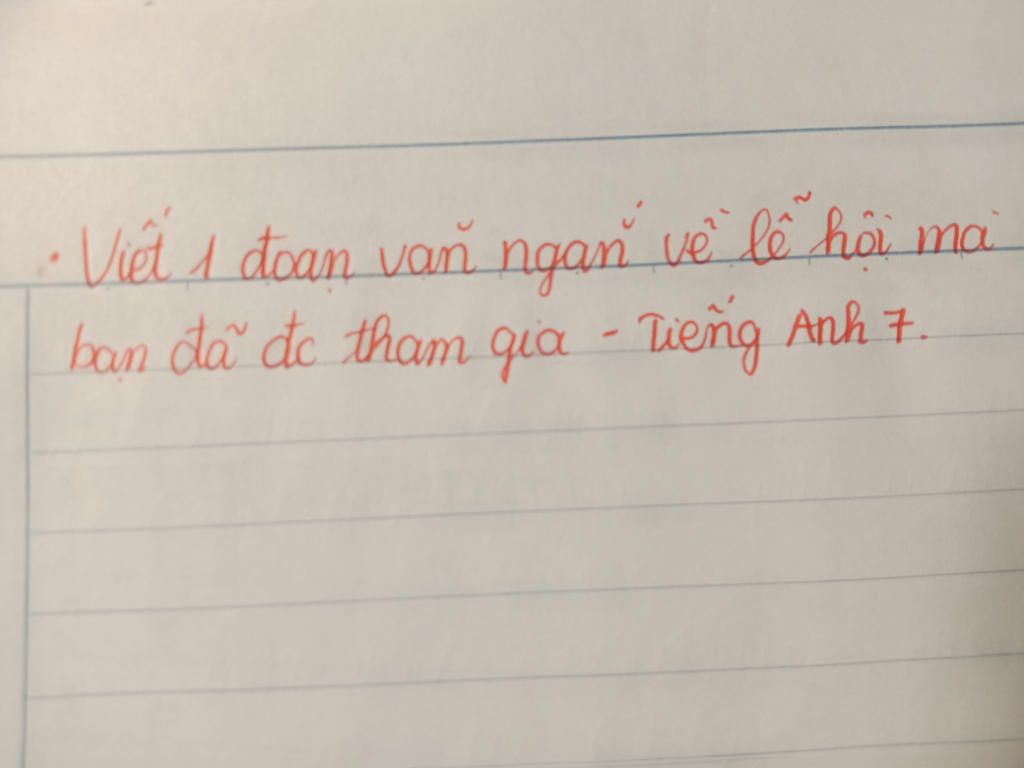 . Viết 1 đoạn văn ngắn về lễ hội mà
bạn đã đc tham gia - Tiếng Anh 7.